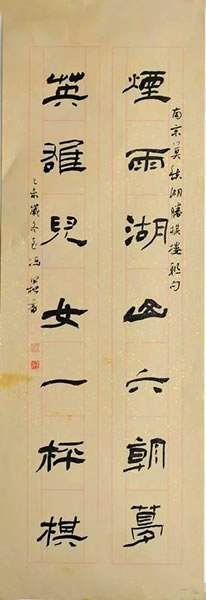 南京莫愁湖勝棋樓聯句
煙雨湖山六朝夢
英雄兒女一枰棋
乙未歲冬至馮